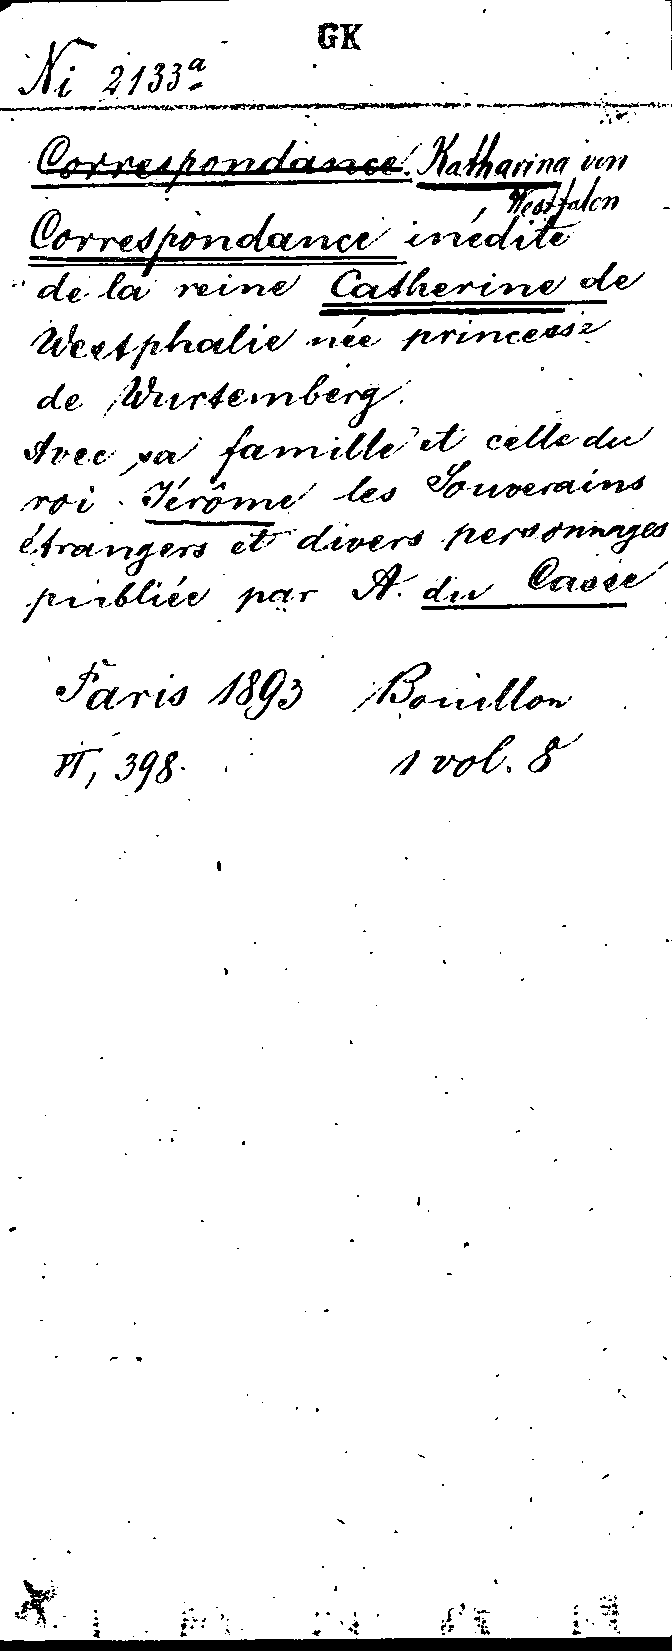 GK
Ni 2133a
Correspondance. Katharina von
Westfalen
Correspondance inédite
de la reine Catherine de
Westphalie née princesse
de Wurtemberg.
Avec sa famille et celle du
roi Jérôme les Souverains
étrangers et divers personnages
publiée par A. du Casse
Paris 1893 Bouillon
VI, 398. 1 vol. 8